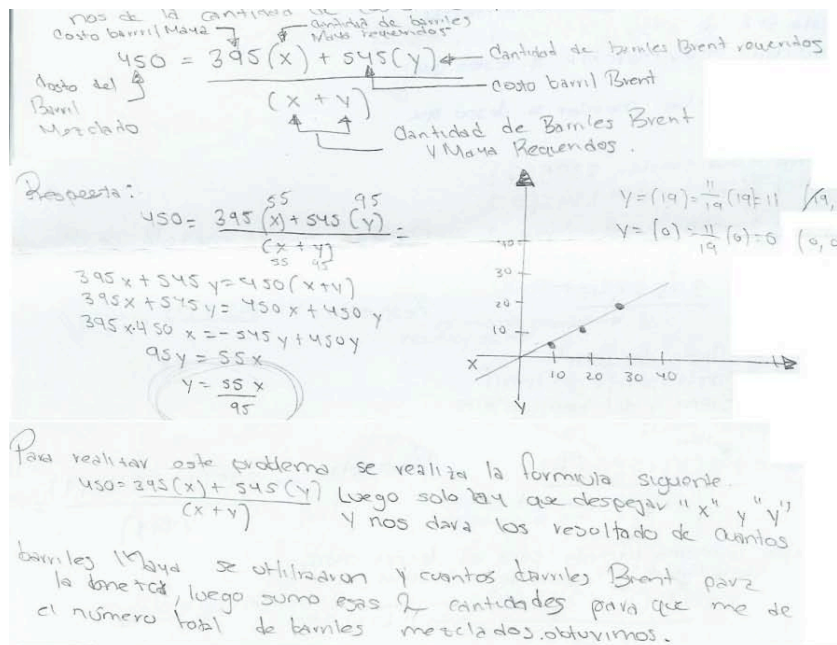 nos de la cantidad de los
Costo barril Maya
cantidad de barriles
Maya requeridos
450 = 395(x) + 545(y)
(x + y)
Cantidad de barriles Brent requeridos
costo barril Brent
Costo del
Barril
Mezclado
Cantidad de Barriles Brent
y Maya Requeridos.
Respuesta:
55 95
450 = 395(x) + 545(y) =
(x + y)
55 95
395x + 545y = 450(x+y)
395x + 545y = 450x + 450y
395x - 450x = -545y + 450y
95y = 55x
y = 55x
95
Y = (19) = 11/19 (19) = 11 (19,
Y = (0) = 11/19 (0) = 0 (0, 0
40
30
20
10
X
10 20 30 40
Y
Para realizar este problema se realiza la formula siguente.
450 = 395(x) + 545(y) Luego solo hay que despejar "x" y "y"
(x + y) y nos dara los resultado de cuantos
barriles Maya se utilizaron y cuantos barriles Brent para
la, luego sumo esas 2 cantidades para que me de
el número total de barriles mezclados. obtuvimos.